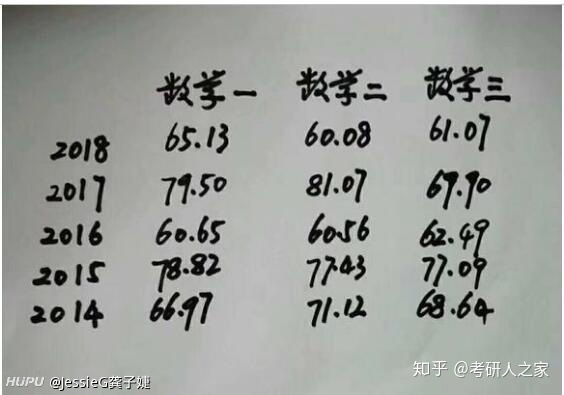 数学一 数学二 数学三
2018 65.13 60.08 61.07
2017 79.50 81.07 69.90
2016 60.65 60.56 62.49
2015 78.82 77.43 77.09
2014 66.97 71.12 68.64
HUPU @JessieG龚子婕 知乎 @考研人之家